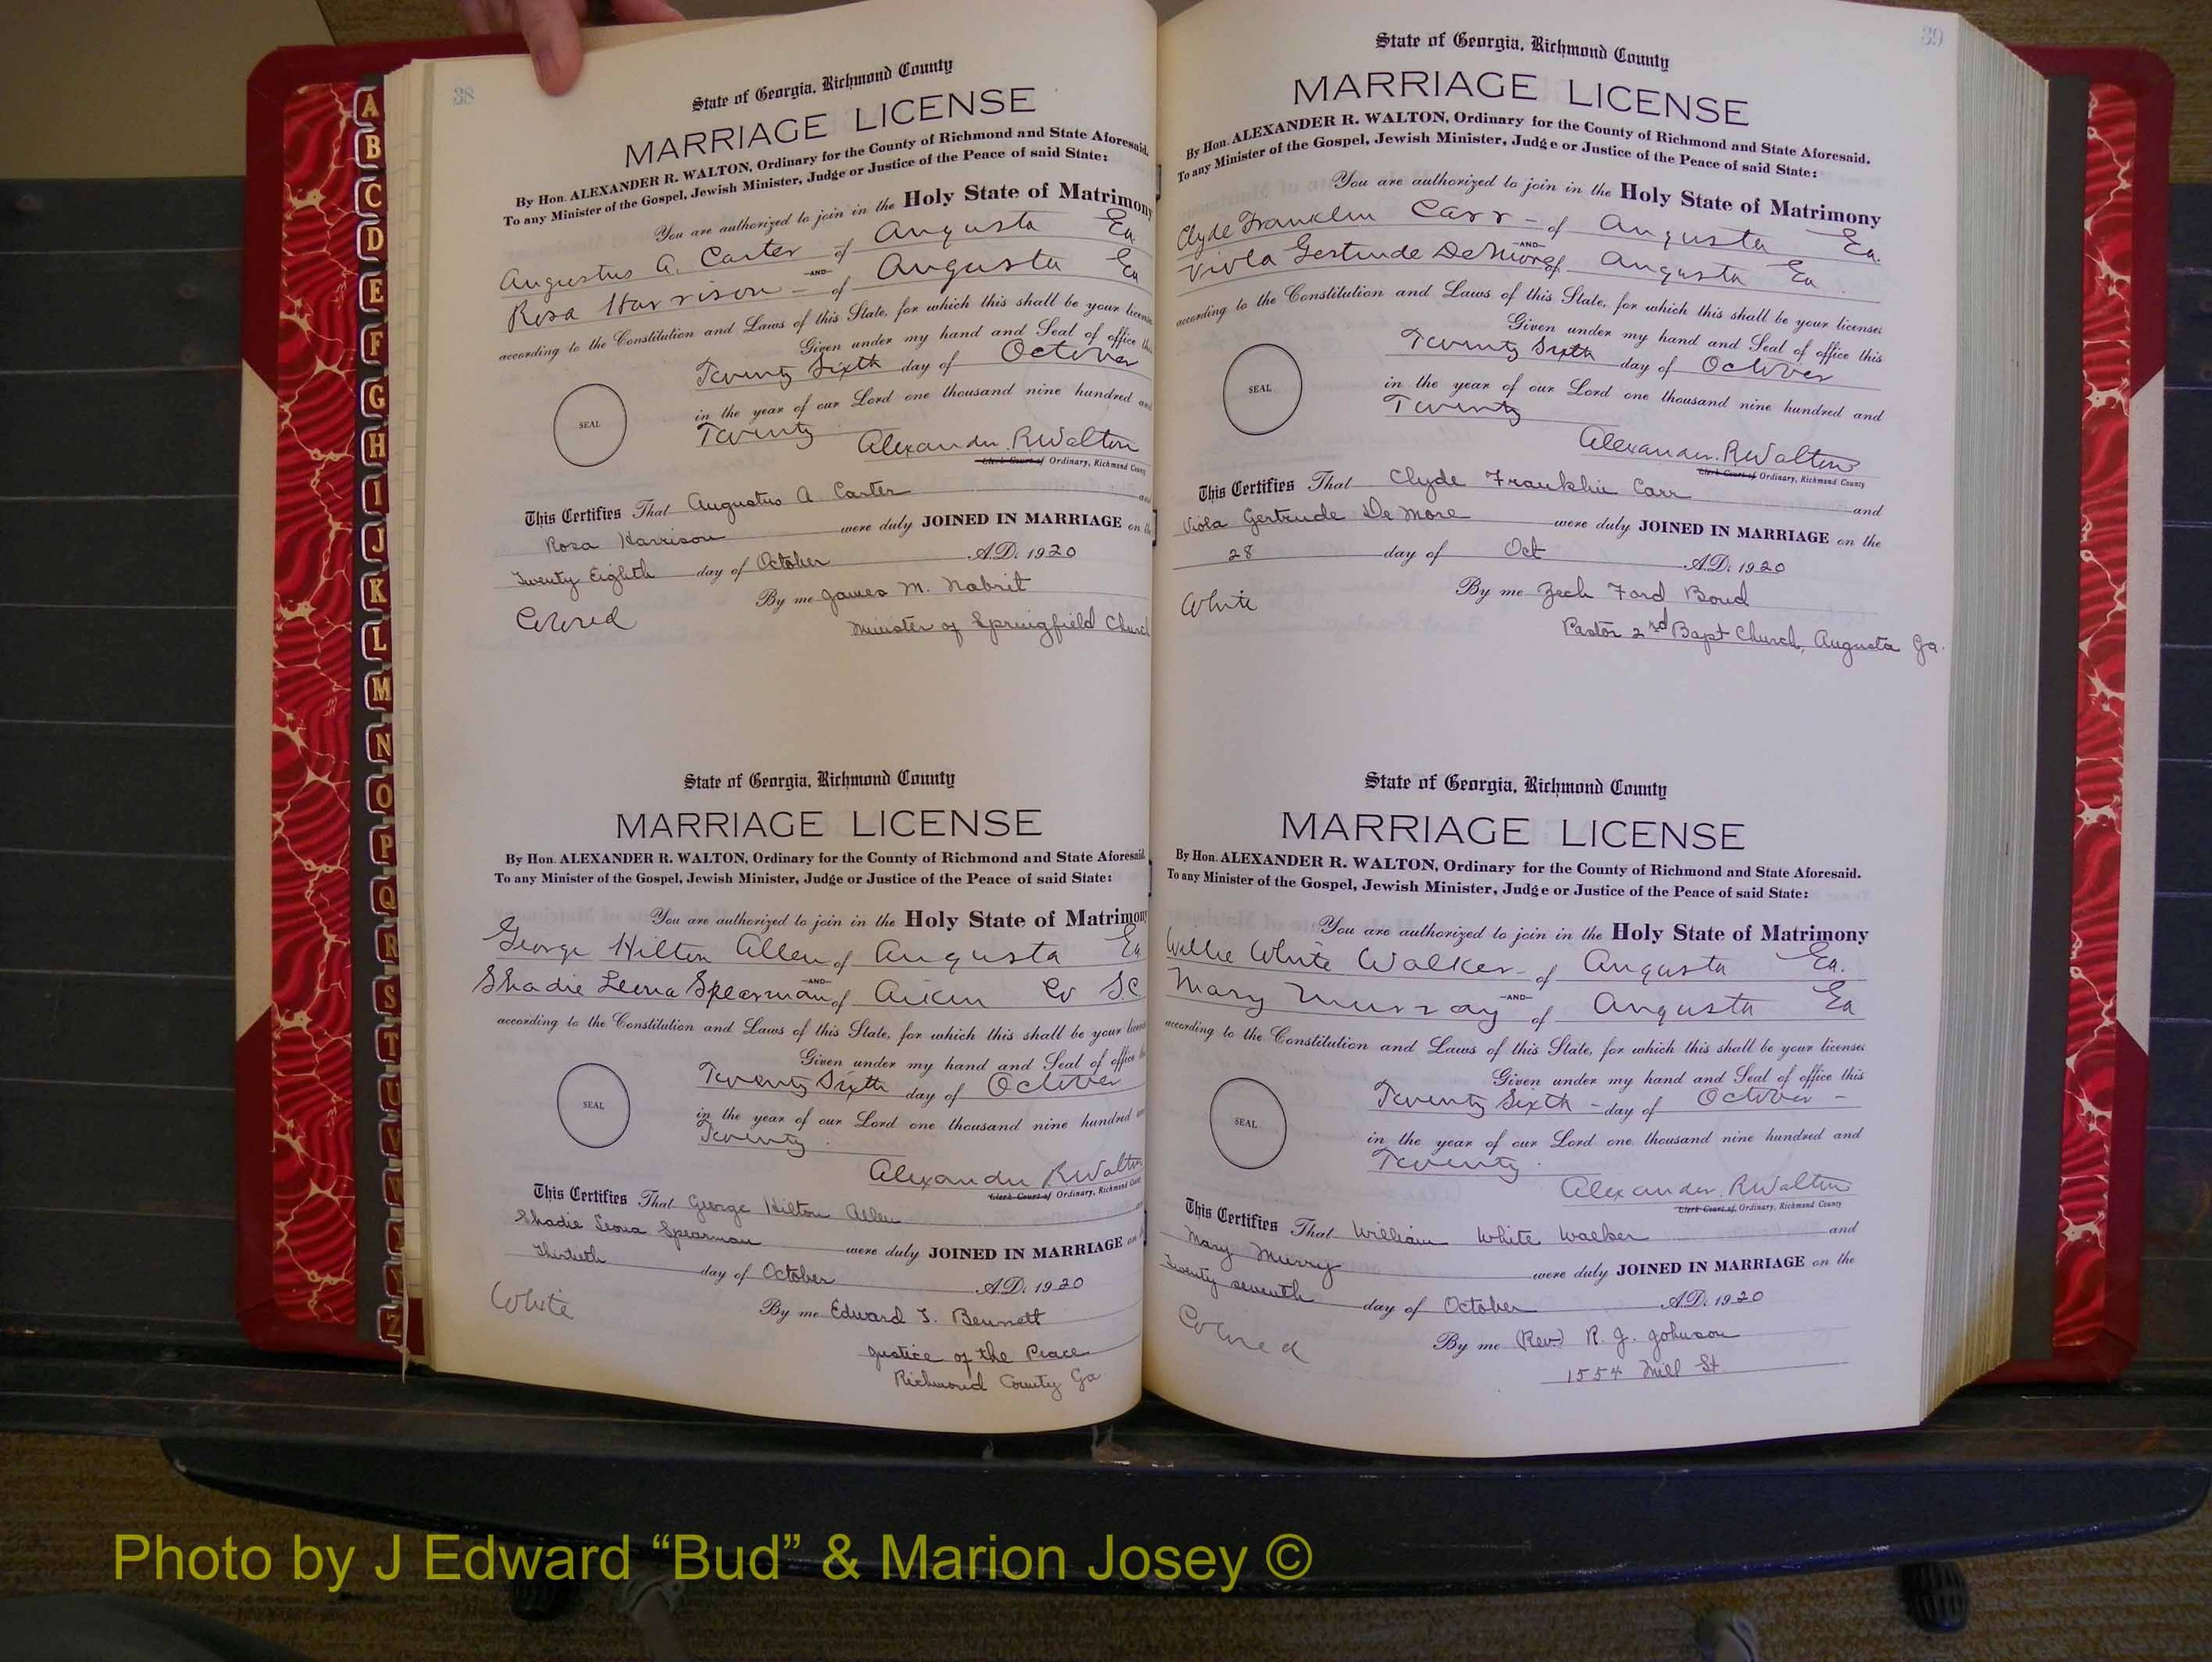 38
State of Georgia, Richmond County
MARRIAGE LICENSE
By Hon. ALEXANDER R. WALTON, Ordinary for the County of Richmond and State Aforesaid.
To any Minister of the Gospel, Jewish Minister, Judge or Justice of the Peace of said State:
You are authorized to join in the Holy State of Matrimony
Augustus A. Carter of Augusta Ga.
AND
Rosa Harrison of Augusta Ga
according to the Constitution and Laws of this State, for which this shall be your license
Given under my hand and Seal of office this
Twenty Sixth day of October
in the year of our Lord one thousand nine hundred and
SEAL
Twenty
Alexander R Walton
Clerk Court of Ordinary, Richmond County
This Certifies That Augustus A Carter and
Rosa Harrison were duly JOINED IN MARRIAGE on the
Twenty Eighth day of October A.D. 1920
By me James M. Nabrit
Colored
Minister of Springfield Church
State of Georgia, Richmond County
MARRIAGE LICENSE
By Hon. ALEXANDER R. WALTON, Ordinary for the County of Richmond and State Aforesaid.
To any Minister of the Gospel, Jewish Minister, Judge or Justice of the Peace of said State:
You are authorized to join in the Holy State of Matrimony
George Hilton Allen of Augusta Ga
AND
Shadie Leona Spearman of Aiken Co S.C
according to the Constitution and Laws of this State, for which this shall be your license
Given under my hand and Seal of office this
Twenty Sixth day of October
SEAL
in the year of our Lord one thousand nine hundred and
Twenty
Alexander R Walton
Clerk Court of Ordinary, Richmond County
This Certifies That George Hilton Allen and
Shadie Leona Spearman were duly JOINED IN MARRIAGE on
Thirtieth day of October A.D. 1920
White
By me Edward T. Bennett
Justice of the Peace
Richmond County Ga
39
State of Georgia, Richmond County
MARRIAGE LICENSE
By Hon. ALEXANDER R. WALTON, Ordinary for the County of Richmond and State Aforesaid.
To any Minister of the Gospel, Jewish Minister, Judge or Justice of the Peace of said State:
You are authorized to join in the Holy State of Matrimony
Clyde Franklin Carr - of Augusta Ga.
AND
Viola Gertrude DeMore of Augusta Ga
according to the Constitution and Laws of this State, for which this shall be your license:
Given under my hand and Seal of office this
Twenty Sixth day of October
SEAL
in the year of our Lord one thousand nine hundred and
Twenty
Alexander R Walton
Clerk Court of Ordinary, Richmond County
This Certifies That Clyde Franklin Carr and
Viola Gertrude De More were duly JOINED IN MARRIAGE on the
28 day of Oct A.D. 1920
By me Zech Ford Bond
White
Pastor 2rd Bapt Church, Augusta Ga.
State of Georgia, Richmond County
MARRIAGE LICENSE
By Hon. ALEXANDER R. WALTON, Ordinary for the County of Richmond and State Aforesaid.
To any Minister of the Gospel, Jewish Minister, Judge or Justice of the Peace of said State:
You are authorized to join in the Holy State of Matrimony
Willie White Walker - of Augusta Ga.
AND
Mary Murray of Augusta Ga
according to the Constitution and Laws of this State, for which this shall be your license:
Given under my hand and Seal of office this
Twenty Sixth - day of October -
SEAL
in the year of our Lord one thousand nine hundred and
Twenty
Alexander R Walton
Clerk Court of Ordinary, Richmond County
This Certifies That William White Walker and
Mary Murry were duly JOINED IN MARRIAGE on the
Twenty seventh day of October A.D. 1920
Colored
By me (Rev) R. J. Johnson
1554 Mill St
A
B
C
D
E
F
G
H
I
J
K
L
M
N
O
P
Q
R
S
T
U
V
W
X
Y
Z
Photo by J Edward “Bud” & Marion Josey ©